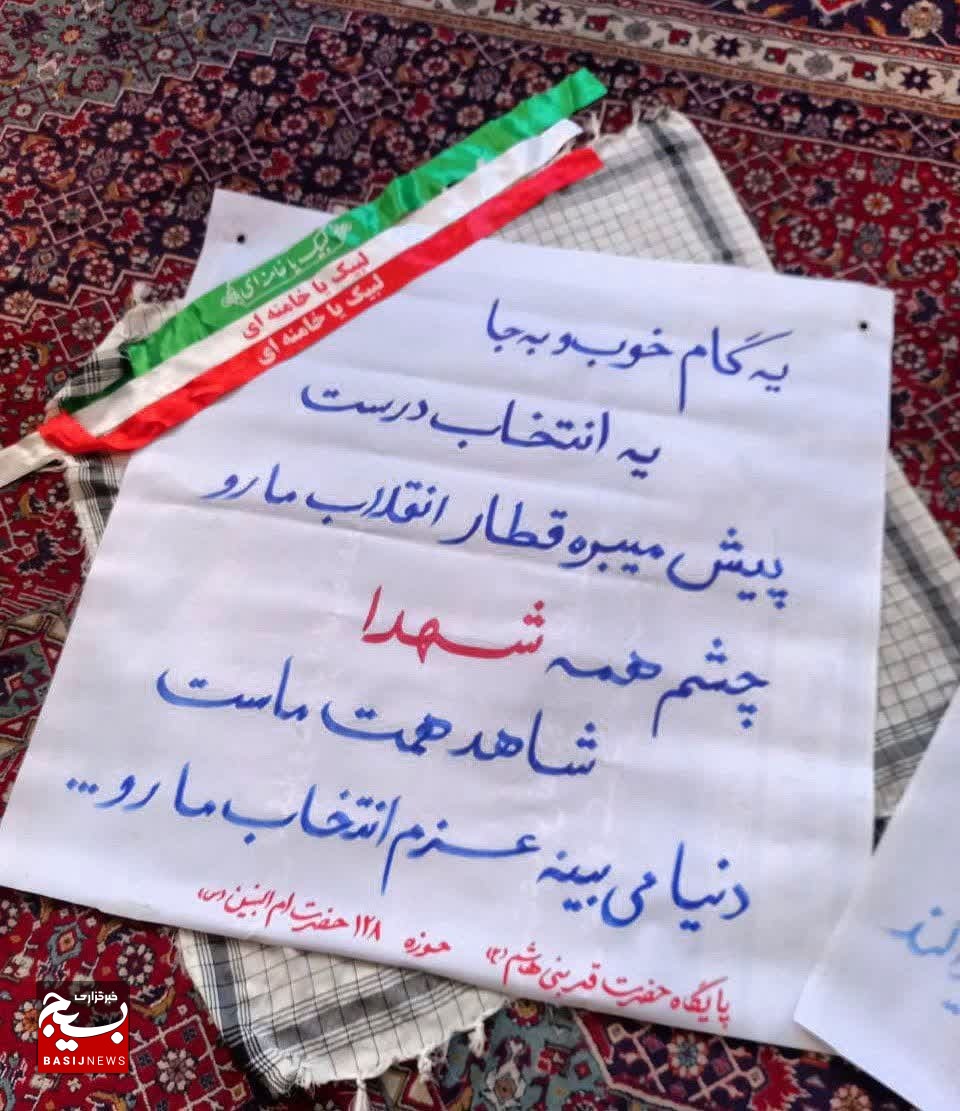 لبیک یا خامنه ای
لبیک یا خامنه ای
لبیک یا خامنه ای
یه گام خوب و به جا
یه انتخاب درست
پیش میبره قطار انقلاب ما رو
چشم همه شهدا
شاهد همت ماست
دنیا می بینه عزم انتخاب ما رو...
پایگاه حضرت قمر بنی هاشم (ع) حوزه ۱۲۸ حضرت ام البنین (س)
خبرگزاری
بسیج
BASIJNEWS